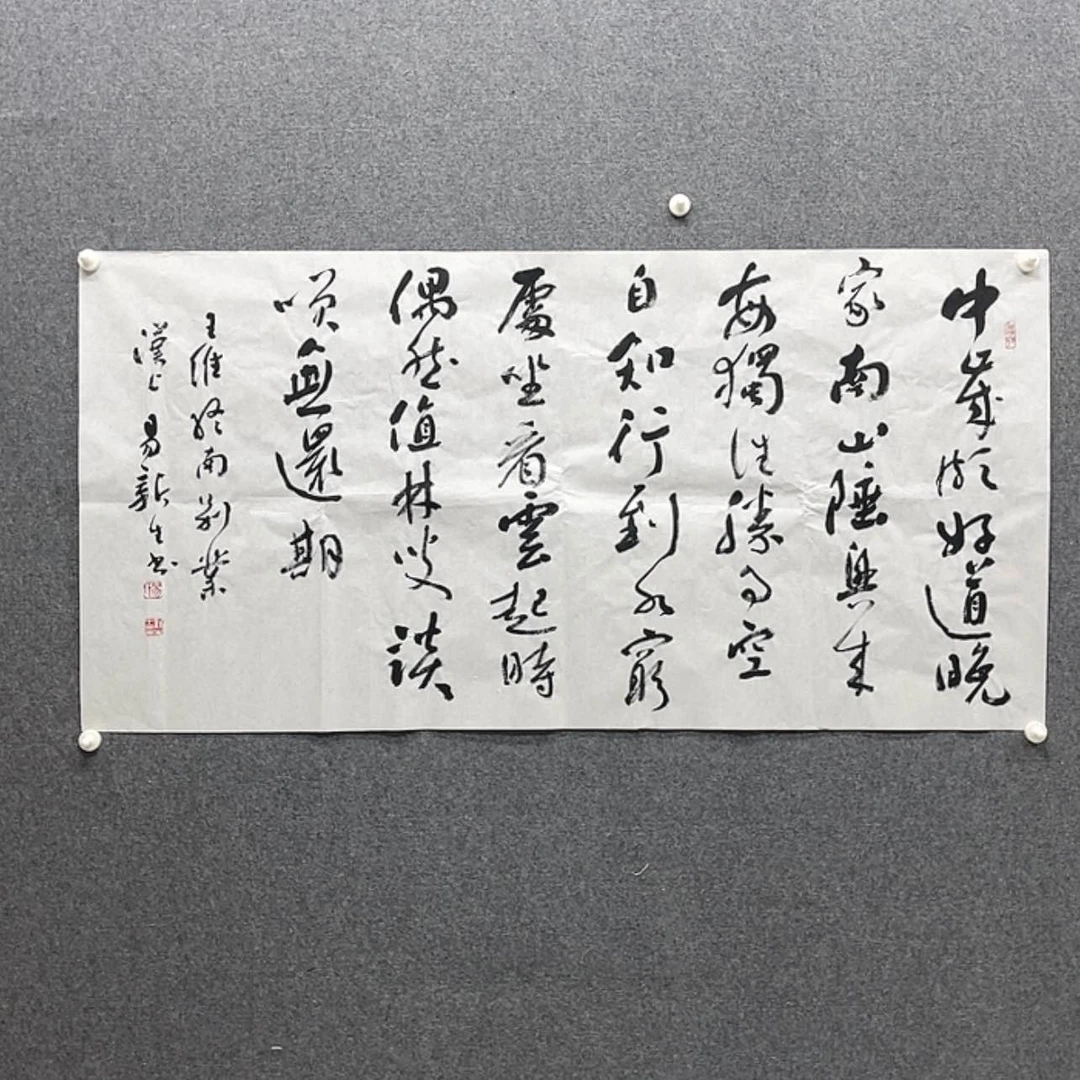 中歲頗好道晚
家南山陲興來
每獨往勝事空
自知行到水窮
處坐看雲起時
偶然值林叟談
咲無還期
王維終南別業
漢上易新生書